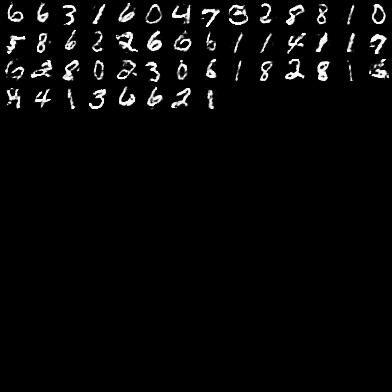 6 6 3 1 6 0 4 7 5 2 8 8 1 0
5 8 6 2 2 6 6 6 1 1 4 1 1 7
6 2 8 0 2 3 0 6 1 8 2 8 1
4 4 1 3 6 6 2 1